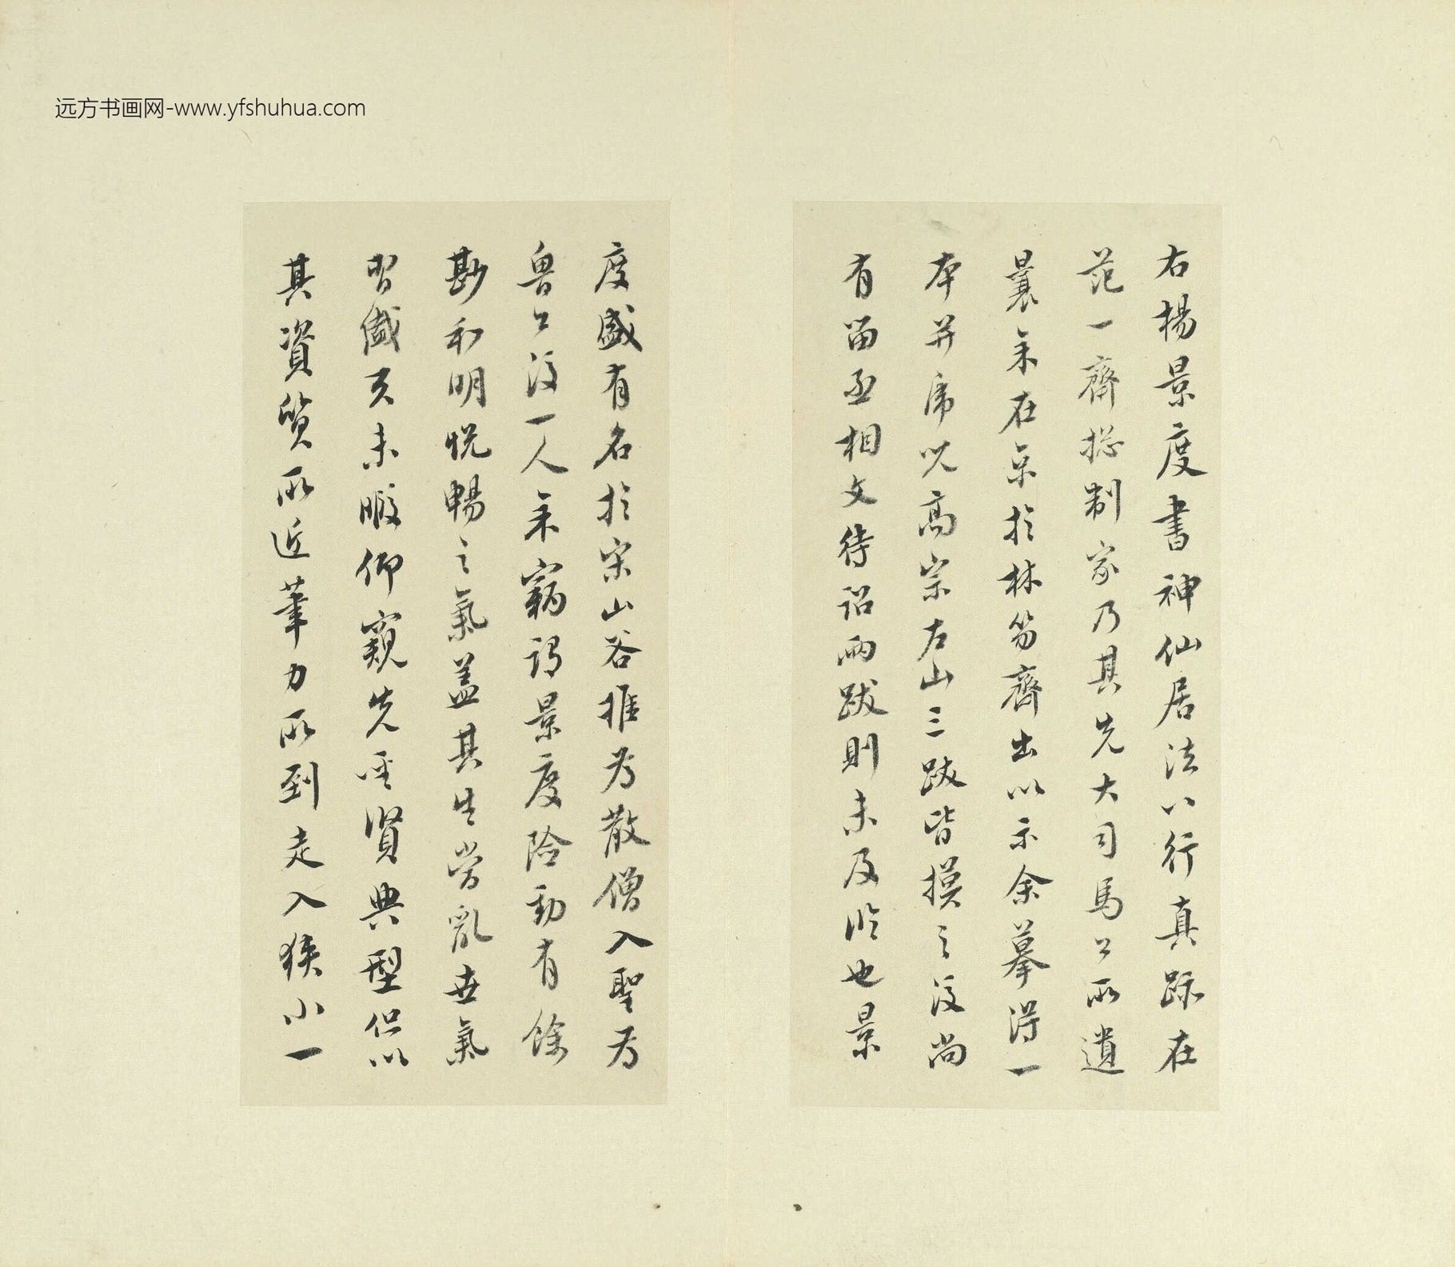 远方书画网-www.yfshuhua.com
右楊景度書神仙居法八行真跡在
范一齋捴制家乃其先大司馬公所遺
曩余在京於林芴齋出以示余摹得一
本并席兄高宗右山三跋皆摸之後尚
有留丞相文待詔兩跋則未及臨也景
度盛有名於宋山谷推為散僧入聖為
魯公後一人余竊謂景度險勁有餘
尠和明悅暢之氣蓋其生当亂世氣
習儳又未暇仰窺先聖賢典型但以
其資質所近筆力所到走入狹小一